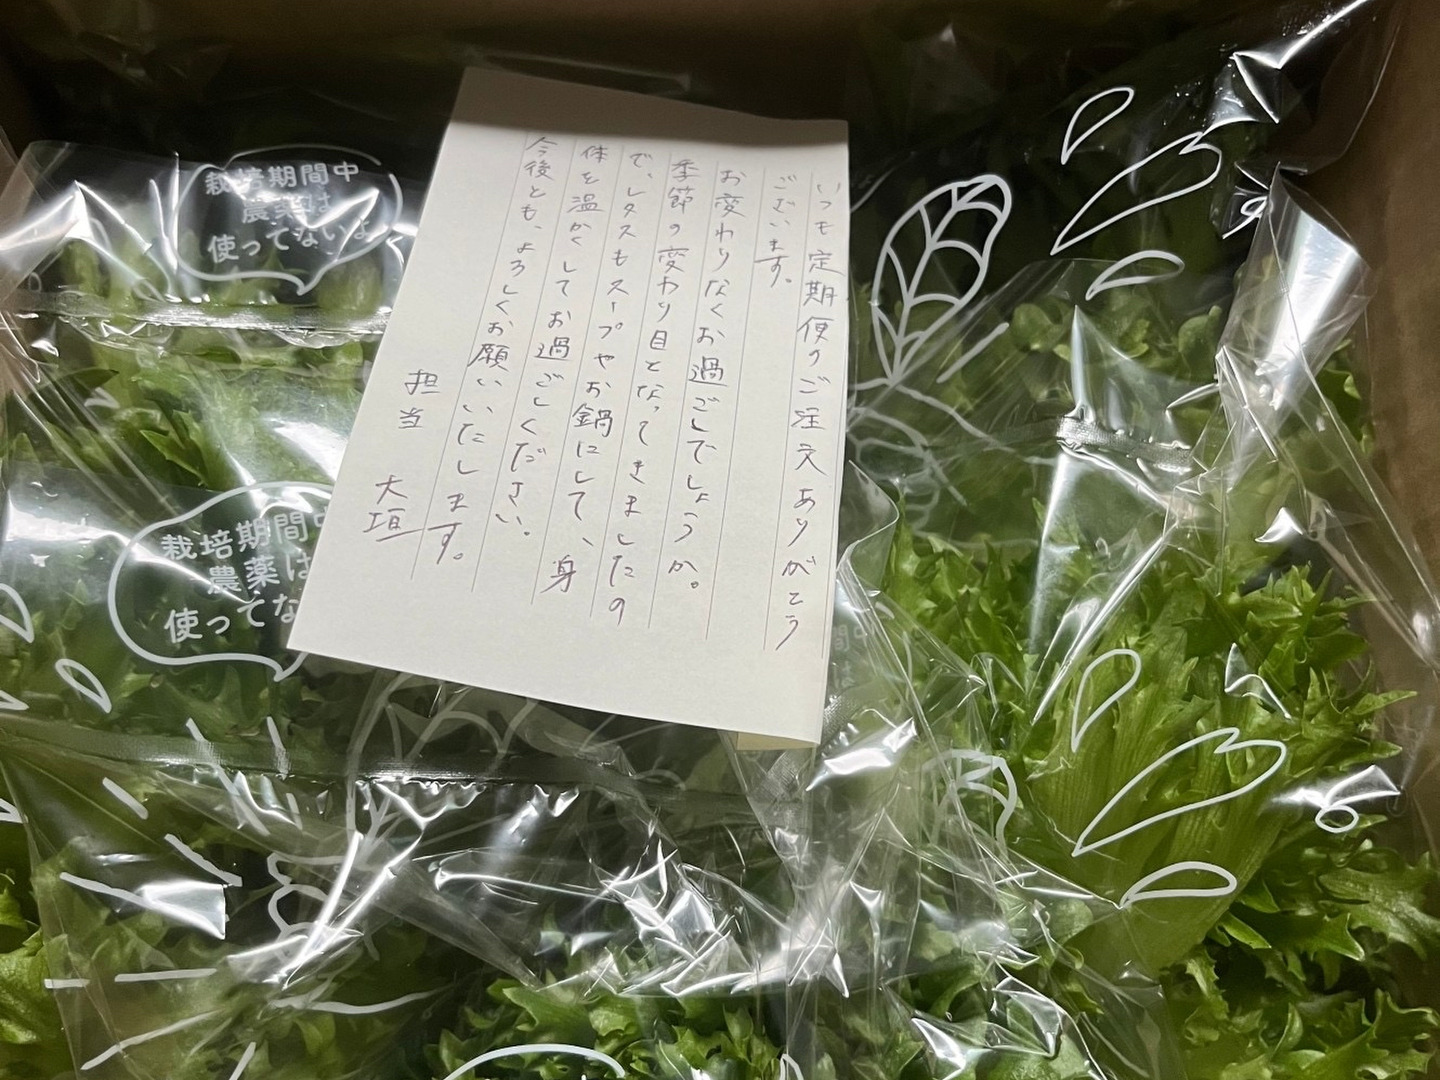 いつも定期便のご注文ありがとう
ございます。
お変わりなくお過ごしでしょうか。
季節の変わり目となってきましたの
で、レタスもスープやお鍋にして、身
体を温かくしてお過ごしください。
今後とも、よろしくお願いいたします。
担当 大垣
栽培期間中
農薬は
使ってないよ
栽培期間中
農薬は
使ってな